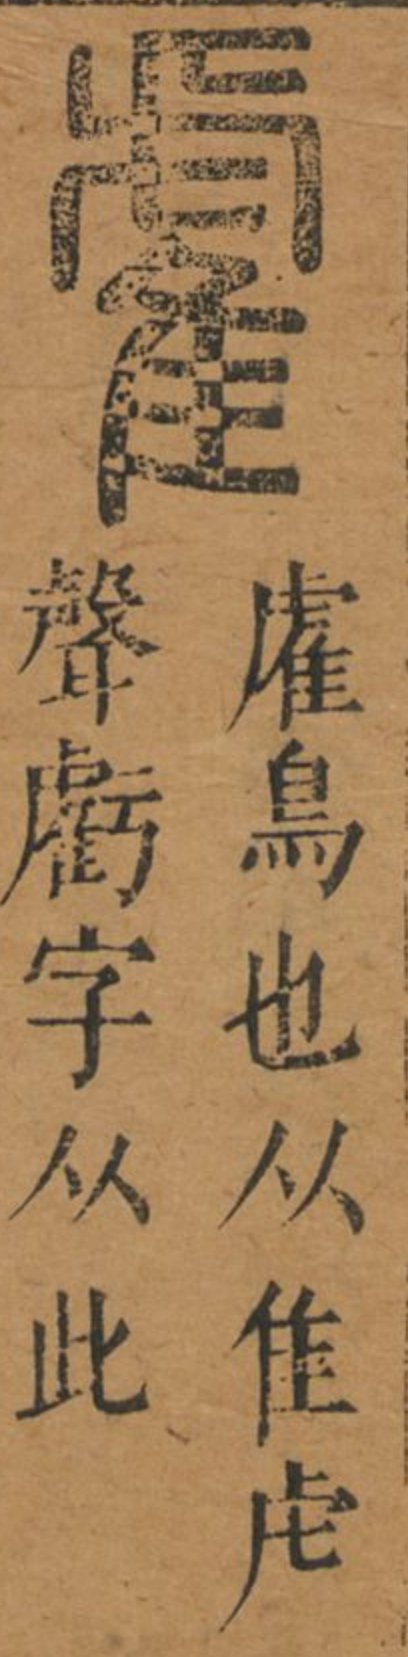 雐
雐鳥也从隹虍
聲虧字从此